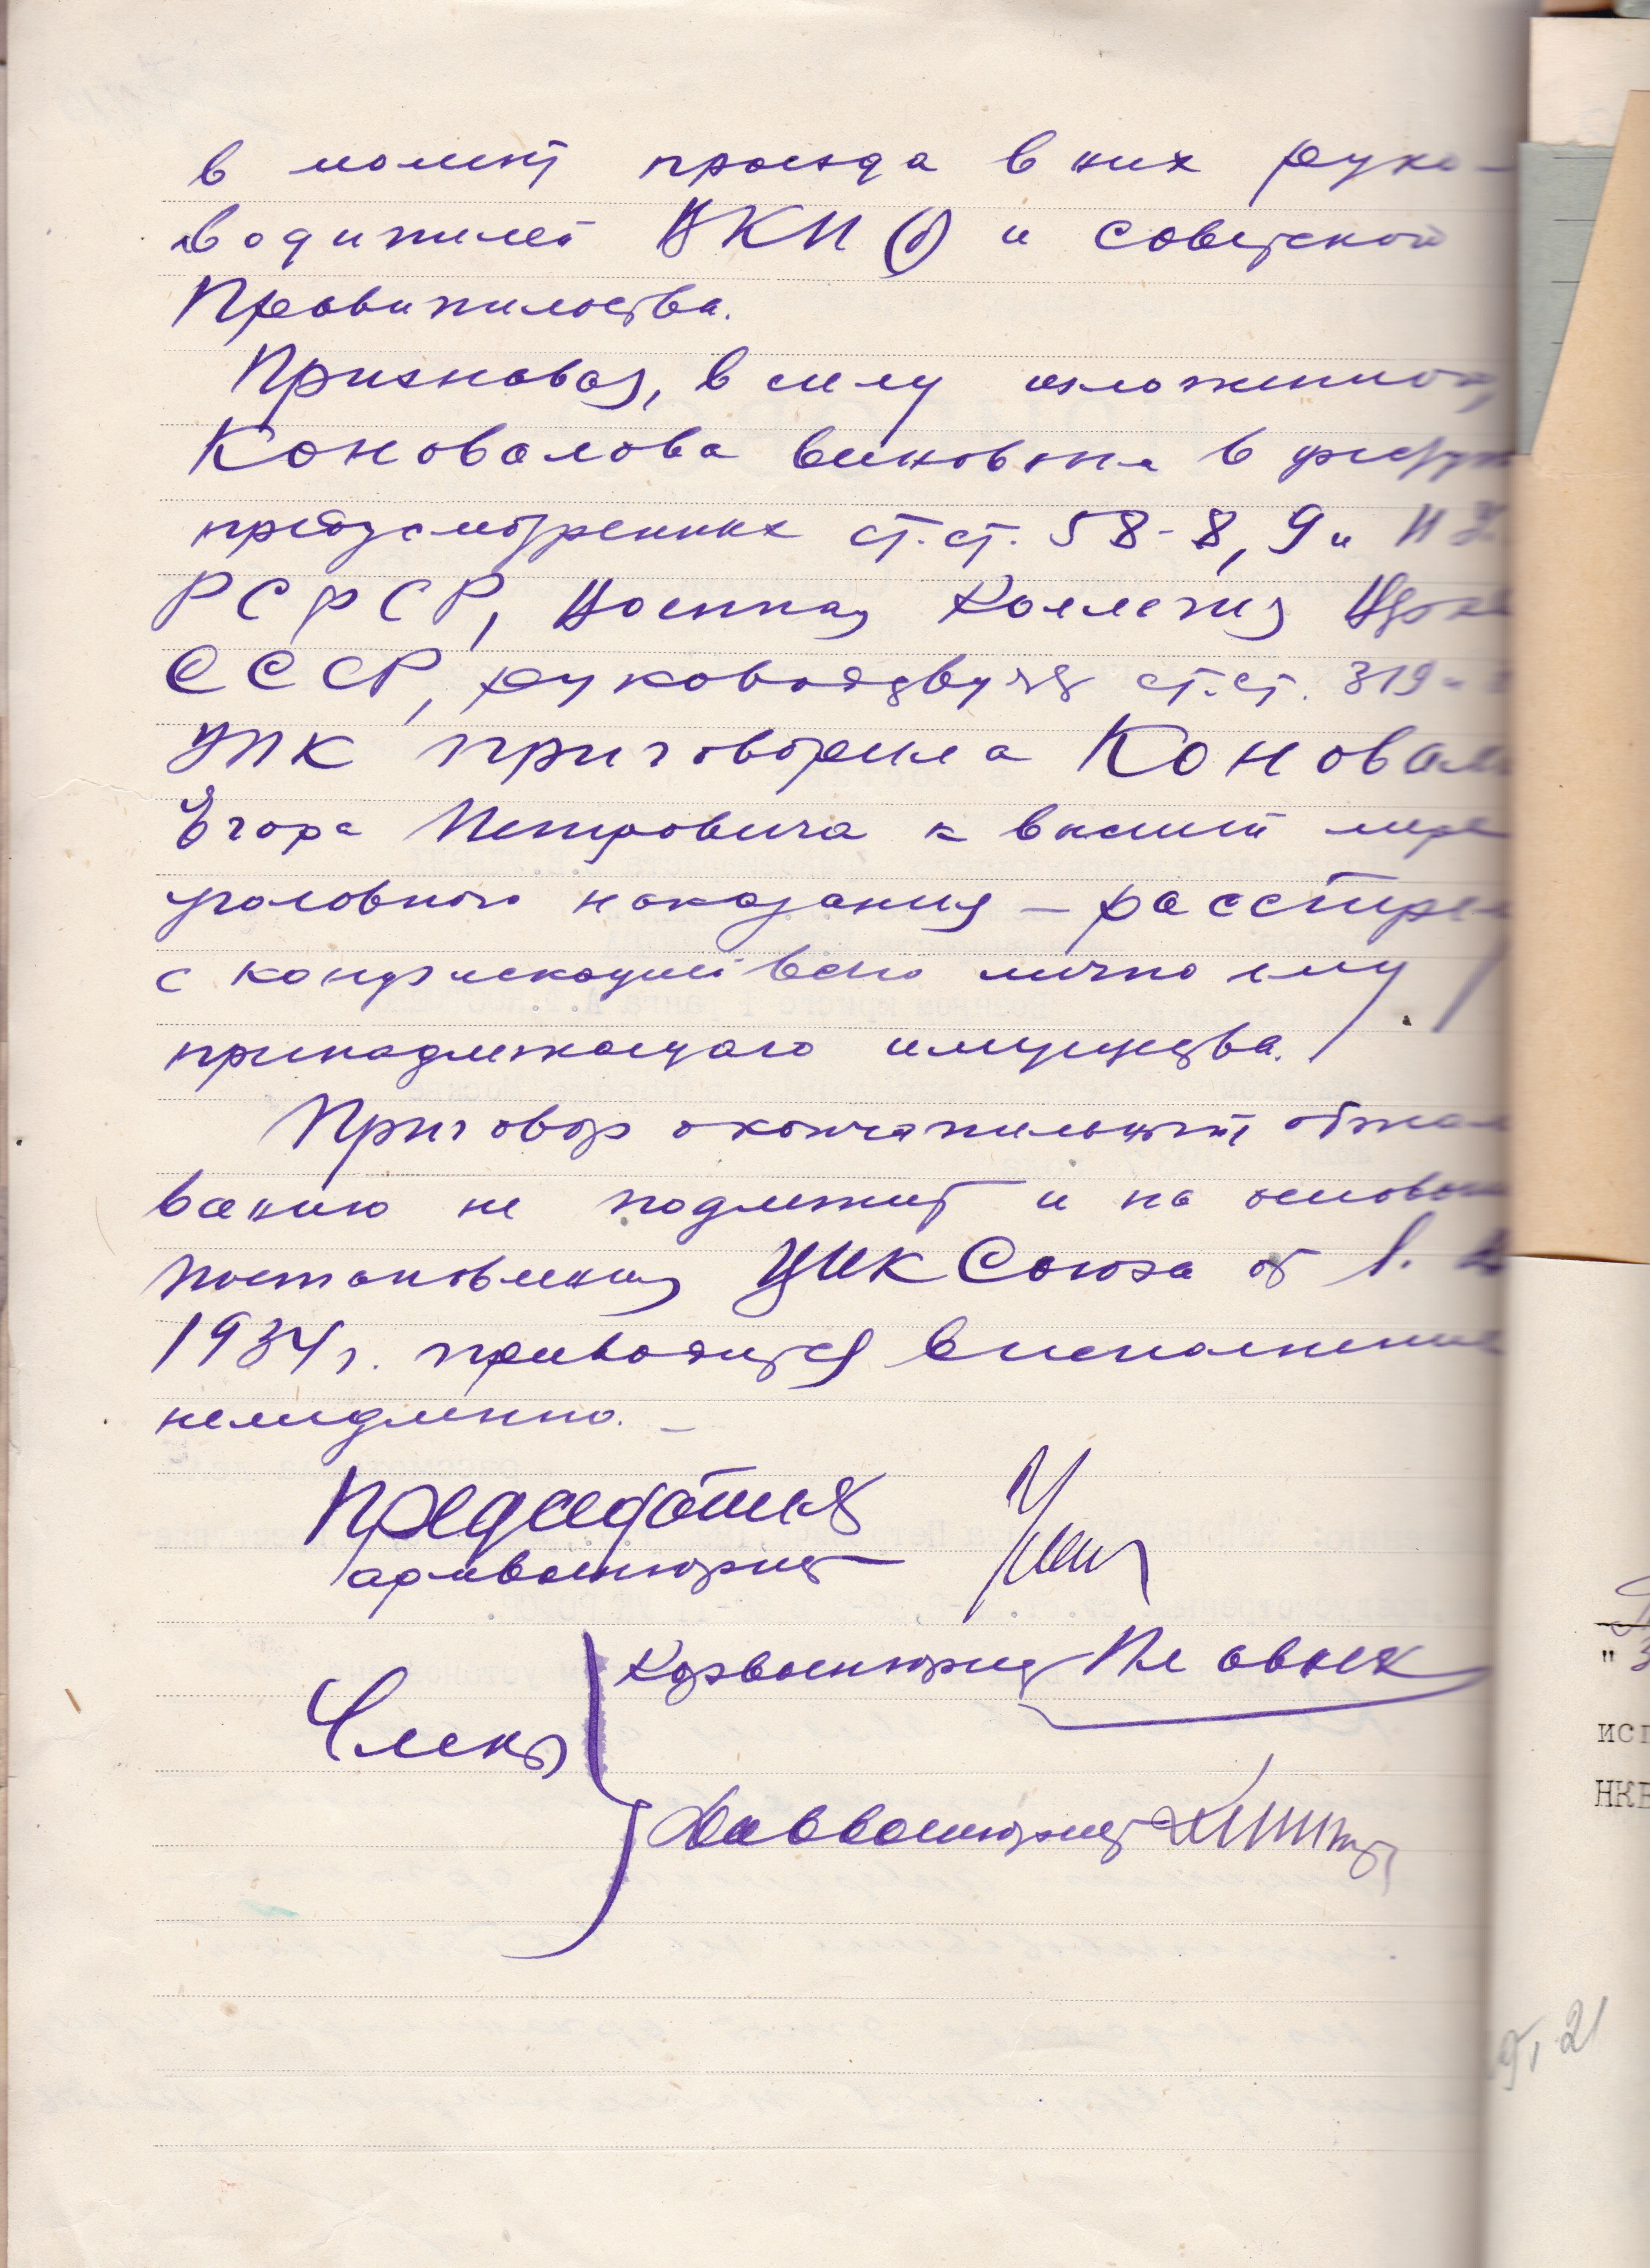 в момент проезда в них руко-
водителей ВКП(б) и советского
Правительства.
Признавая, в силу изложенного,
Коновалова виновным в
предусмотренных ст.ст. 58-8, 9 и 11 У
РСФСР, Военная Коллегия Верх
СССР, руководствуясь ст.ст. 319 и
УПК приговорила Коновало
Егора Петровича к высшей мере
уголовного наказания – расстрел
с конфискацией всего лично ему
принадлежащаго имущества.
Приговор окончательный обжало
ванию не подлежит и на основан
постановления ЦИК Союза от 1.
1934 г. приводится в исполнение
немедленно. –
Председатель
армвоенюрист
Корвоенюрист
Члены
Диввоенюрист
" 3
исп
НКВ
21